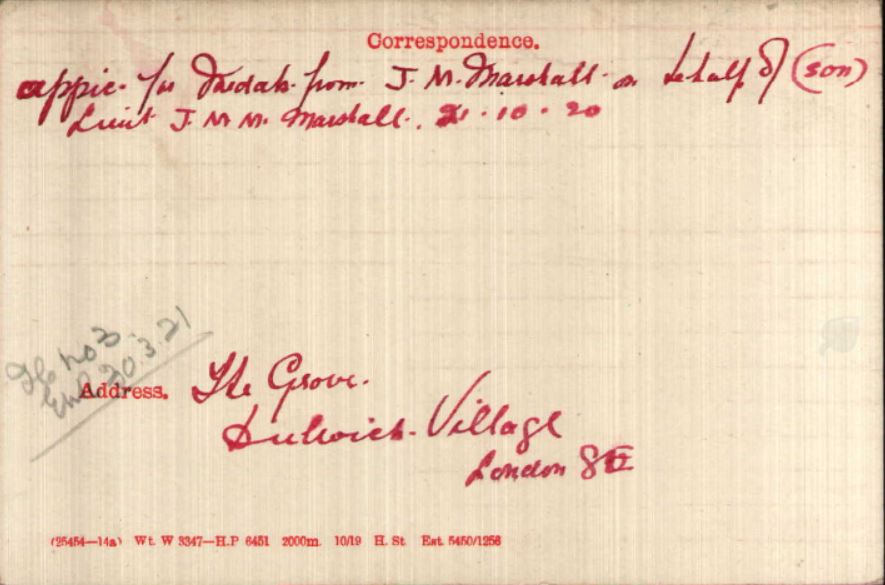 Correspondence.
applc. for Medals. from. J. M. Marshall. on behalf of (son)
Lieut J. M M. Marshall. 21 . 10 . 20
20.3.21
Address. The Grove.
Dulwich. Village
London SE
(25454—14a) Wt. W 3347—H.P 6451 2000m. 10/19 H. St. Est. 5450/1256